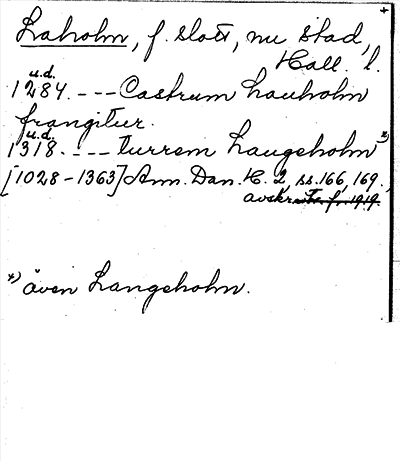 Laholm, f. slott, nu stad,
Hall. l.
u.d.
1284. --- Castrum Lauholm
frangitur.
u.d.
1318. ---- turrem Laugeholm *)
[1028-1363] Ann. Dan. H. 2, ss. 166, 169.,
avskrifter fr. 1919.
*) även Langeholm.